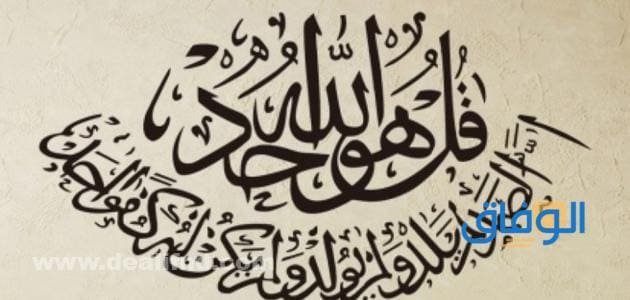 قُلْ هُوَ اللَّهُ أَحَدٌ
اللَّهُ الصَّمَدُ لَمْ يَلِدْ وَلَمْ يُولَدْ وَلَمْ يَكُنْ لَهُ كُفُوًا أَحَدٌ
الوفاق